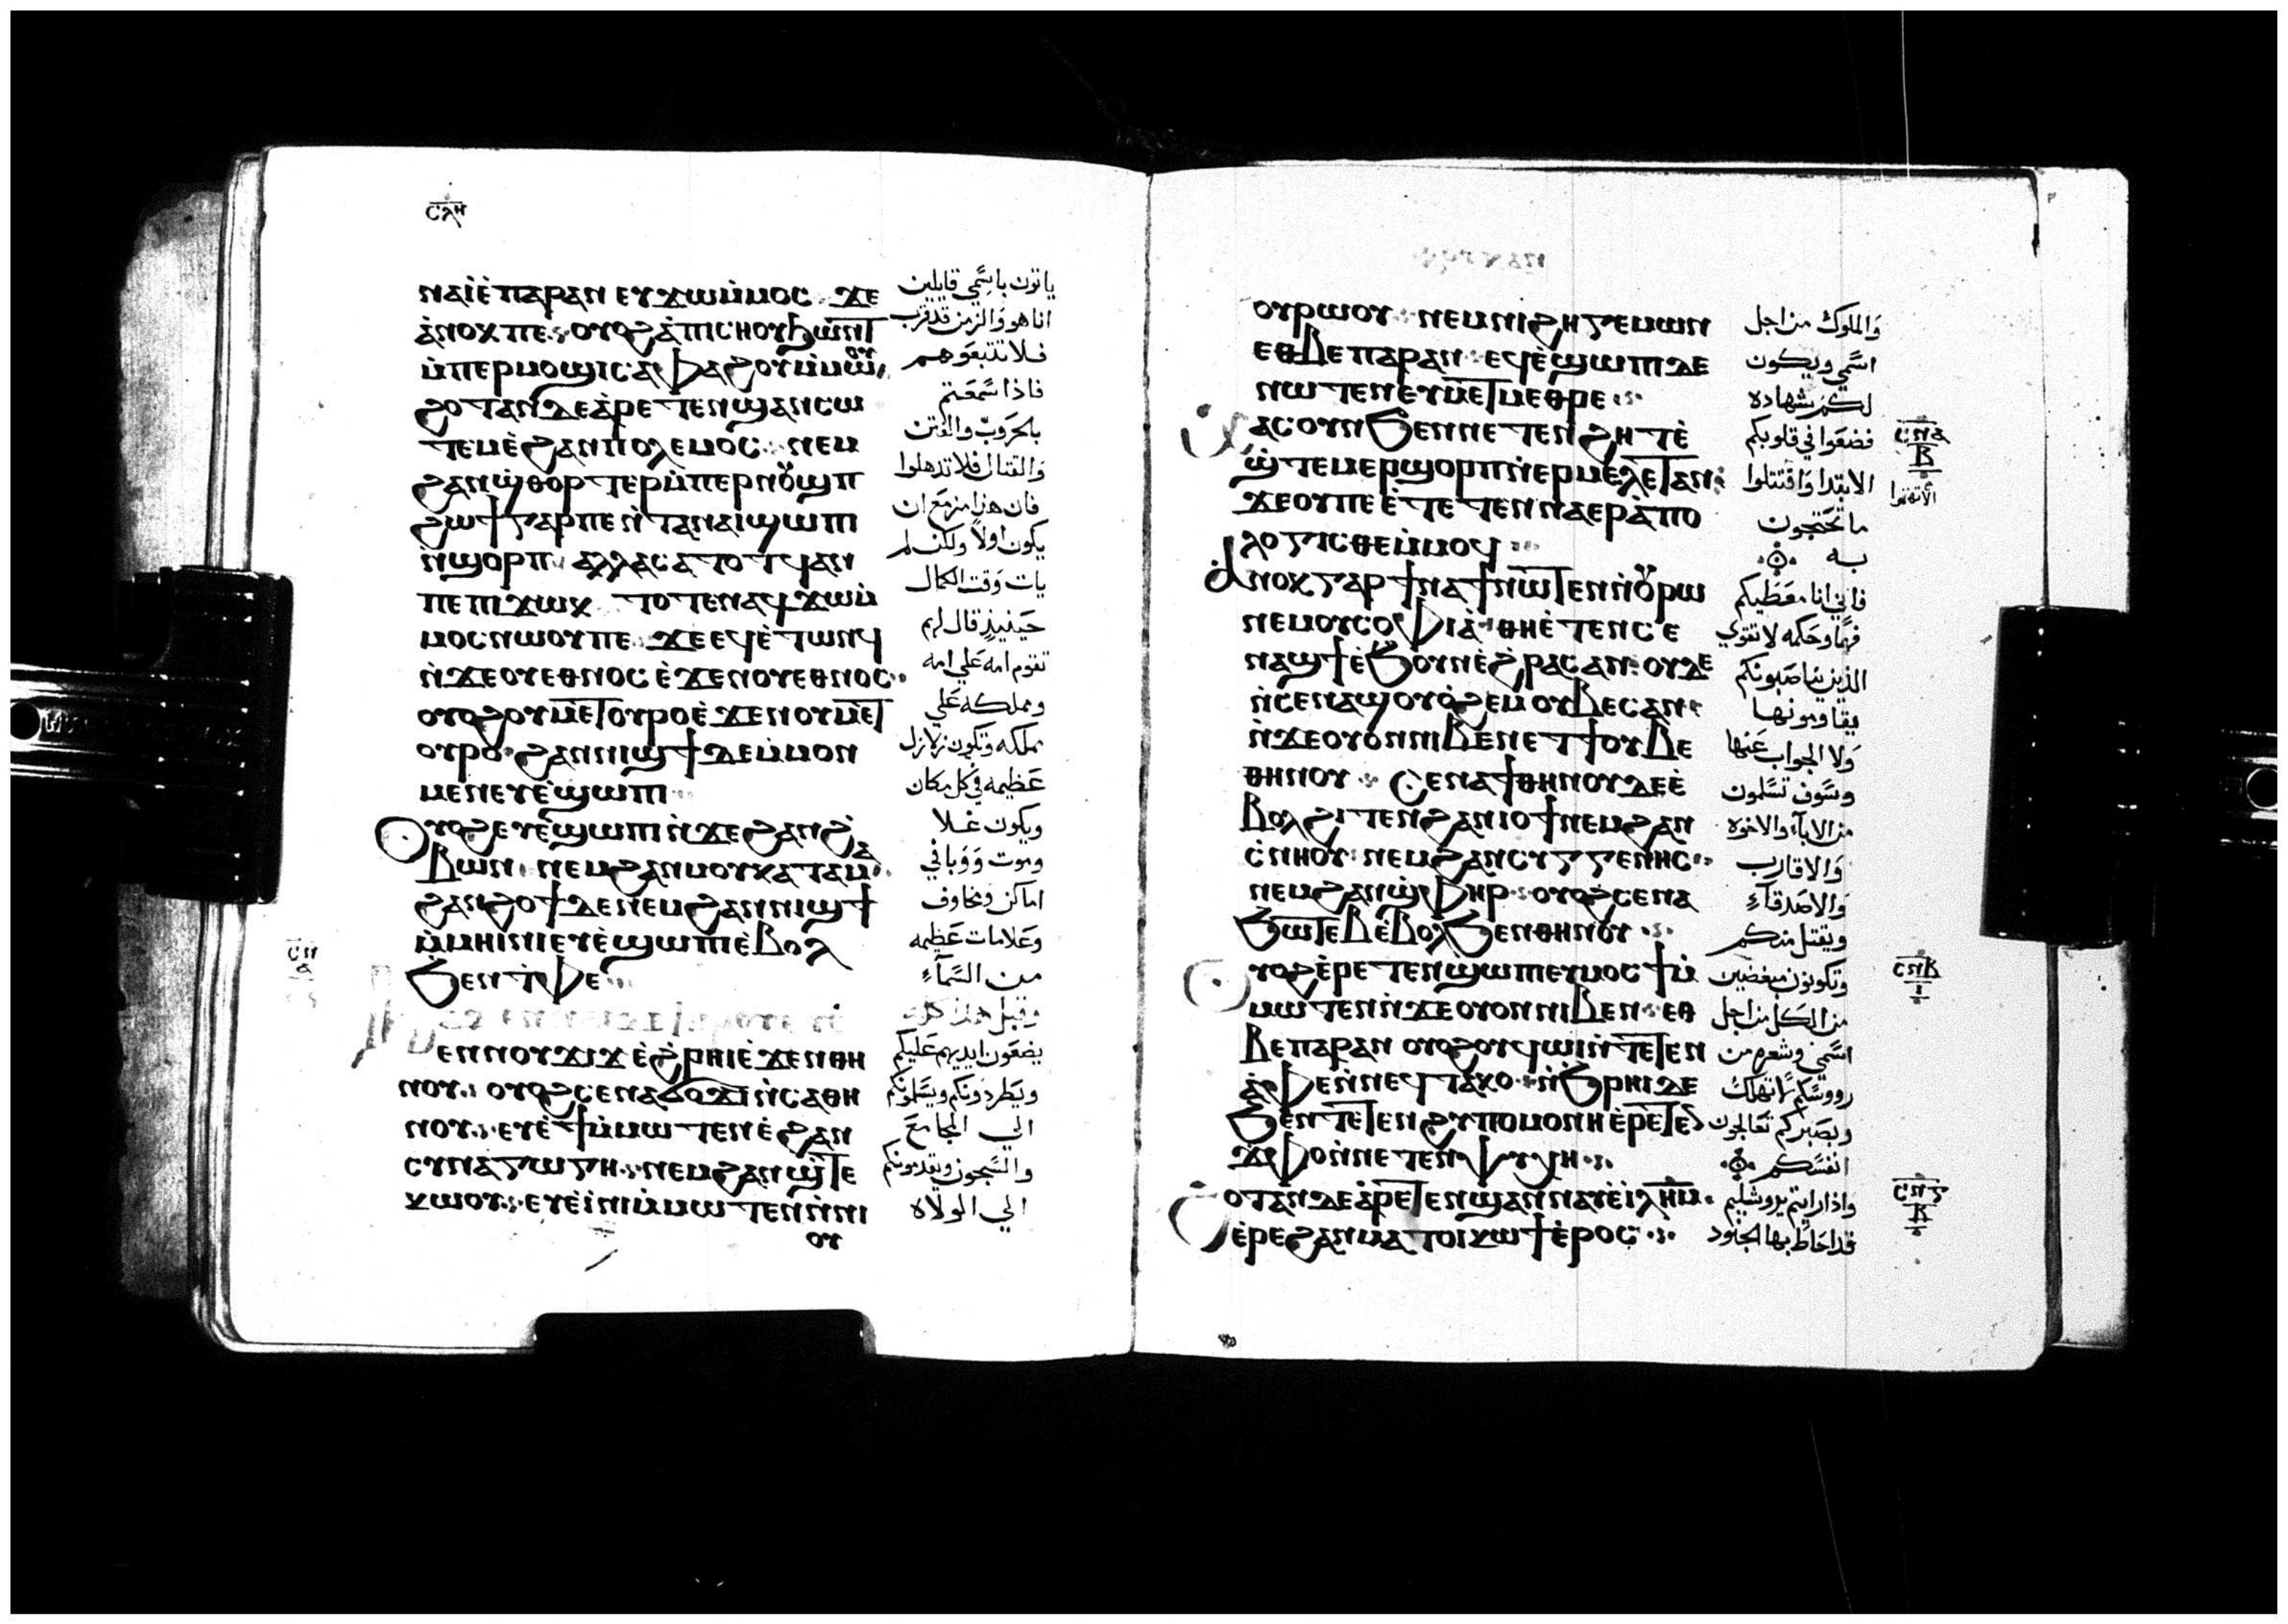 ⲥⲗⲏ
ⲛⲁⲓ̀ⲉ̀ ⲡⲁⲣⲁⲛ ⲉⲩϫⲱⲙ̀ⲙⲟⲥ ϫⲉ
ⲁ̀ⲛⲟⲕ ⲡⲉ ⲟⲩⲟϩ ⲁ̀ⲡⲓⲥⲏⲟⲩ ϧⲱⲛⲧ
ⲙ̀ⲡⲉⲣⲙⲟϣⲓ ⲥⲁ ⲫⲁϩⲟⲩ ⲙ̀ⲙⲱⲟⲩ
ϩⲟⲧⲁⲛ ⲇⲉ ⲁ̀ⲣⲉⲧⲉⲛϣⲁⲛⲥⲱ
ⲧⲉⲙ ⲉ̀ϩⲁⲛⲡⲟⲗⲉⲙⲟⲥ ⲛⲉⲙ
ϩⲁⲛϣ̀ⲑⲟⲣⲧⲉⲣ ⲙ̀ⲡⲉⲣⲛⲟⲩϣⲡ
ϩⲱϯ ⲅⲁⲣ ⲡⲉ ⲛ̀ⲧⲁ ⲛⲁⲓ ϣⲱⲡⲓ
ⲛ̀ϣⲟⲣⲡ ⲁⲗⲗⲁ ⲥⲁⲧⲟⲧϥ ⲁⲛ
ⲡⲉ ⲡⲓϫⲱⲕ ⲧⲟⲧⲉ ⲛⲁϥϫⲱⲙ̀
ⲙⲟⲥ ⲛⲱⲟⲩ ⲡⲉ ϫⲉ ⲉϥⲉ̀ⲧⲱⲛϥ
ⲛ̀ϫⲉ ⲟⲩⲉⲑⲛⲟⲥ ⲉ̀ϫⲉⲛ ⲟⲩⲉⲑⲛⲟⲥ
ⲟⲩⲟϩ ⲟⲩⲙⲉⲧⲟⲩⲣⲟ ⲉ̀ϫⲉⲛ ⲟⲩⲙⲉⲧ
ⲟⲩⲣⲟ ϩⲁⲛⲛⲓϣϯ ⲇⲉ ⲙ̀ⲙⲟⲛ
ⲙⲉⲛ ⲉⲩⲉ̀ϣⲱⲡⲓ
ⲟⲩⲟϩ ⲉⲩⲉ̀ϣⲱⲡⲓ ⲛ̀ϫⲉ ϩⲁⲛϩ̀
ⲃⲱⲛ ⲛⲉⲙ ϩⲁⲛⲙⲟⲩ ⲕⲁⲧⲁ ⲙⲁ
ϩⲁⲛϩⲟϯ ⲇⲉ ⲛⲉⲙ ϩⲁⲛⲛⲓϣϯ
ⲙ̀ⲙⲏⲓⲛⲓ ⲉⲩⲉ̀ϣⲱⲡⲓ ⲉ̀ⲃⲟⲗ
ϧⲉⲛ ⲧ̀ⲫⲉ
ⲉⲛ ⲛⲟⲩϫⲓϫ ⲉ̀ϩ̀ⲣⲏⲓ ⲉ̀ϫⲉⲛ ⲑⲏ
ⲛⲟⲩ ⲟⲩⲟϩ ⲥⲉⲛⲁϭⲟϫⲓ ⲛ̀ⲥⲁ ⲑⲏ
ⲛⲟⲩ ⲉⲩⲉ̀ϯ ⲙ̀ⲙⲱⲧⲉⲛ ⲉ̀ϩⲁⲛ
ⲥⲩⲛⲁⲅⲱⲅⲏ ⲛⲉⲙ ϩⲁⲛϣ̀ⲧⲉ
ⲕⲱⲟⲩ ⲉⲩⲉ̀ⲓ̀ⲛⲓ ⲙ̀ⲙⲱⲧⲉⲛ ⲛ̀ⲛⲓ
ⲟⲩ
ياتون باسمي قايلين
انا هو والزمن قد قرب
فلا تتبعوهم
فاذا سمعتم
بالحروب والفتن
والقتال فلا تذهلوا
فان هذا مزمع ان
يكون اولا ولكن لم
يات وقت الكمال
حينيذ قال لهم
تقوم امه علي امه
ومملكه علي
مملكه وتكون زلازل
عظيمه في كل مكان
ويكون غلا
وموت ووبا في
اماكن ومخاوف
وعلامات عظيمه
من السماء
وقبل هذا كله
يضعون ايديهم عليكم
ويطردونكم ويسلمونكم
الي المجامع
والسجون ويقدمونكم
الي الولاه
ⲟⲩⲣⲱⲟⲩ ⲛⲉⲙ ⲛⲓϩⲏⲅⲉⲙⲱⲛ
ⲉⲑⲃⲉ ⲡⲁⲣⲁⲛ ⲉϥⲉ̀ϣⲱⲡⲓ ⲇⲉ
ⲛⲱⲧⲉⲛ ⲉⲩⲙⲉⲧⲙⲉⲑⲣⲉ
ⲭⲁⲥ ⲟⲩⲛ ϧⲉⲛ ⲛⲉⲧⲉⲛϩⲏⲧ ⲉ̀
ϣ̀ⲧⲉⲙⲉⲣϣⲟⲣⲡ ⲛ̀ⲉⲣⲙⲉⲗⲉⲧⲁⲛ
ϫⲉ ⲟⲩ ⲡⲉ ⲉ̀ⲧⲉⲧⲉⲛⲛⲁⲉⲣⲁ̀ⲡⲟ
ⲗⲟⲅⲓⲥⲑⲉ ⲙ̀ⲙⲟϥ
ⲁ̀ⲛⲟⲕ ⲅⲁⲣ ϯⲛⲁϯ ⲛⲱⲧⲉⲛ ⲛ̀ⲟⲩⲣⲱ
ⲛⲉⲙ ⲟⲩⲥⲟⲫⲓⲁ̀ ⲑⲏ ⲉ̀ⲧⲉⲛⲥⲉ
ⲛⲁϣϯ ⲉ̀ϧⲟⲩⲛ ⲉ̀ϩ̀ⲣⲁⲥ ⲁⲛ ⲟⲩⲇⲉ
ⲛ̀ⲥⲉⲛⲁϣⲟⲩⲟ̀ϩⲉⲙ ⲟⲩⲃⲉⲥ ⲁⲛ
ⲛ̀ϫⲉ ⲟⲩⲟⲛ ⲛⲓⲃⲉⲛ ⲉⲧϯ ⲟⲩⲃⲉ
ⲑⲏⲛⲟⲩ ⲥⲉⲛⲁϯ ⲑⲏⲛⲟⲩ ⲇⲉ ⲉ̀
ⲃⲟⲗ ϩⲓⲧⲉⲛ ϩⲁⲛⲓⲟϯ ⲛⲉⲙ ϩⲁⲛ
ⲥ̀ⲛⲏⲟⲩ ⲛⲉⲙ ϩⲁⲛⲥⲩⲅⲅⲉⲛⲏⲥ
ⲛⲉⲙ ϩⲁⲛϣ̀ⲫⲏⲣ ⲟⲩⲟϩ ⲥⲉⲛⲁ
ϧⲱⲧⲉⲃ ⲉ̀ⲃⲟⲗ ϧⲉⲛ ⲑⲏⲛⲟⲩ
ⲟⲩⲟϩ ⲉ̀ⲣⲉⲧⲉⲛϣⲱⲡⲓ ⲉⲩⲙⲟⲥϯ ⲙ̀
ⲙⲱⲧⲉⲛ ⲛ̀ϫⲉ ⲟⲩⲟⲛ ⲛⲓⲃⲉⲛ ⲉⲑ
ⲃⲉ ⲡⲁⲣⲁⲛ ⲟⲩⲟϩ ⲟⲩϥⲱⲓ ⲛ̀ⲧⲉⲧⲉⲛ
ⲁ̀ⲫⲉ ⲛ̀ⲛⲉϥⲧⲁⲕⲟ ⲛ̀ϧⲣⲏⲓ ⲇⲉ
ϧⲉⲛ ⲧⲉⲧⲉⲛϩⲩⲡⲟⲙⲟⲛⲏ ⲉ̀ⲣⲉⲧⲉ
ϫ̀ⲫⲟ ⲛ̀ⲛⲉⲧⲉⲛⲯⲩⲭⲏ
ϩⲟⲧⲁⲛ ⲇⲉ ⲁ̀ⲣⲉⲧⲉⲛϣⲁⲛⲛⲁⲩ ⲉ̀ⲓ̀ⲗⲏⲙ
ⲉ̀ⲣⲉ ϩⲁⲛⲙⲁⲧⲟⲓ ⲕⲱϯ ⲉ̀ⲣⲟⲥ
والملوك من اجل
اسمي ويكون
لكم شهاده
فضعوا في قلوبكم
ما تحتجون
به
فاني انا معطيكم
فما وحكمه لا تقوي
الذين يناصبونكم
يقاومونها
ولا الجواب عنها
وسوف تسلمون
من الاباء والاخوه
والاقارب
والاصدقاء
ويقتل منكم
وتكونون مبغضين
من الكل من اجل
اسمي وشعره من
رووسكم لا تهلك
وبصبركم تعالجون
انفسكم
واذا رايتم يروشليم
قد احاط بها الجنود
ⲥⲛⲃ